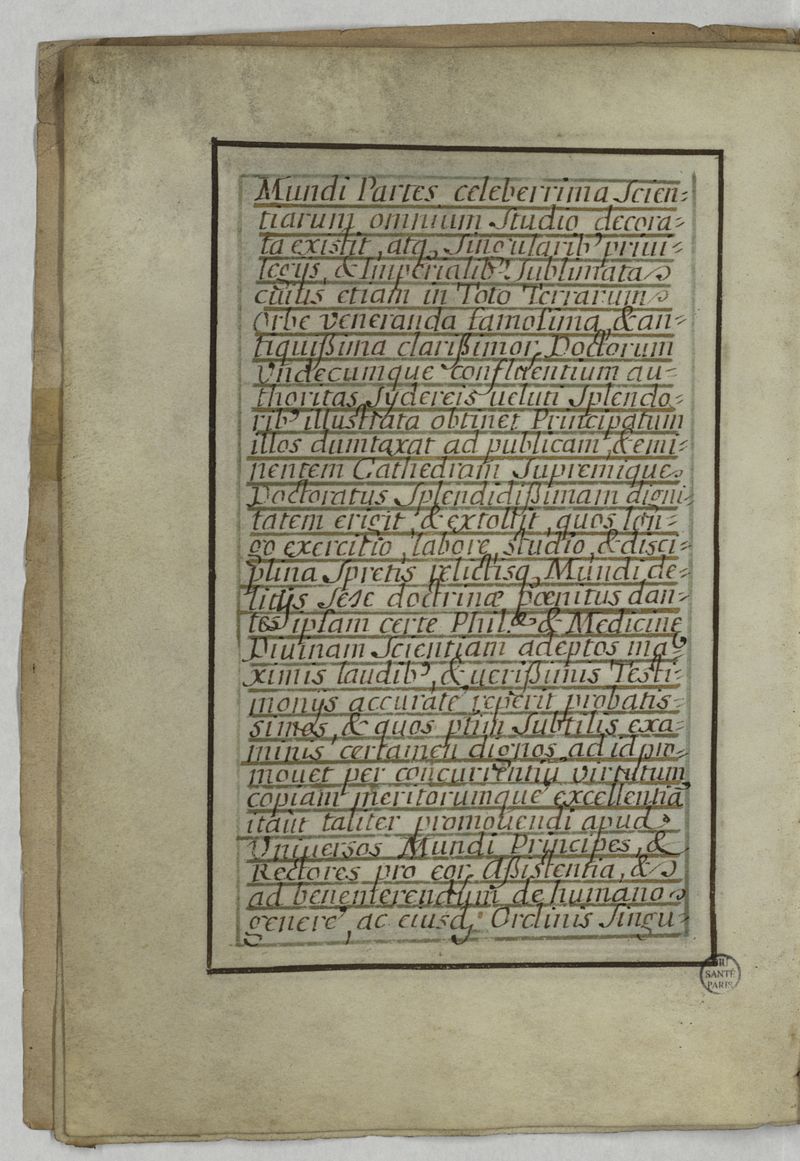 Mundi Partes celeberrima Scien=
tiarum omnium Studio decora=
ta existit, atq, Singularib' priui=
legijs, & Imperialib' Sublimata
cuius etiam in Toto Terrarum
Orbe veneranda famosima, & an=
tiquißima clarißimor, Doctorum
Vndecumque confluentium au=
thoritas Sydereis ueluti Splendo=
rib' illustrata obtinet Principatum
illos dumtaxat ad publicam, & emi=
nentem Cathedram Supremique
Doctoratus Splendidißimam digni=
tatem erigit, & extollit, quos lon=
go exercitio, labore, studio, & disci=
plina Spretis relictisq, Mundi de=
litijs Sese doctrinæ pœnitus dan=
tes ipsam certe Phil.æ & Medicine
Diuinam Scientiam adeptos ma=
ximis laudib', & uerißimis Testi=
monijs accurate reperit probatis=
simos, & quos ptim Subtilis exa=
minis certamen dignos ad id pro=
mouet per concurrentiū virtutum
copiam meritorumque excellentiā
itaut taliter promouendi apud
Uniuersos Mundi Principes, &
Rectores pro eor, Aßistentia, &
ad benenterendum de humano
genere, ac eiusd, Ordinis Singu=
BIU
SANTÉ
PARIS